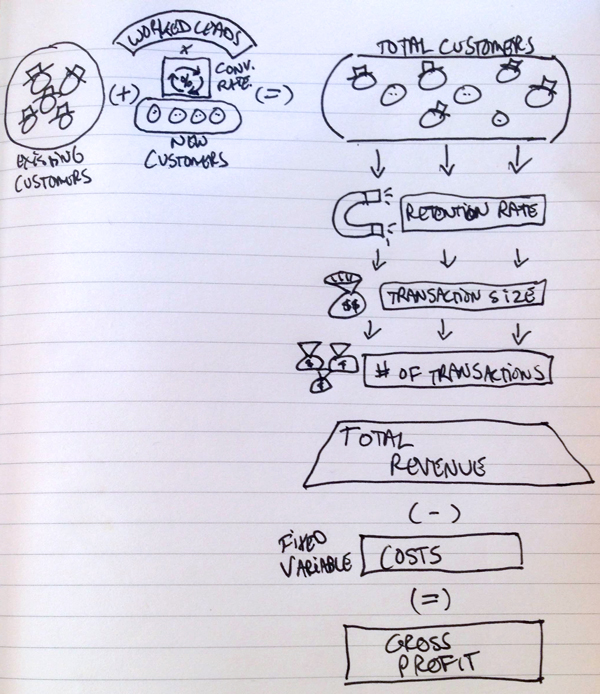 WORKED LEADS
x
%
CONV.
RATE.
(+)
(=)
EXISTING
CUSTOMERS
NEW
CUSTOMERS
TOTAL CUSTOMERS
RETENTION RATE
$$
TRANSACTION SIZE
$
# OF TRANSACTIONS
TOTAL
REVENUE
(-)
FIXED
VARIABLE
COSTS
(=)
GROSS
PROFIT